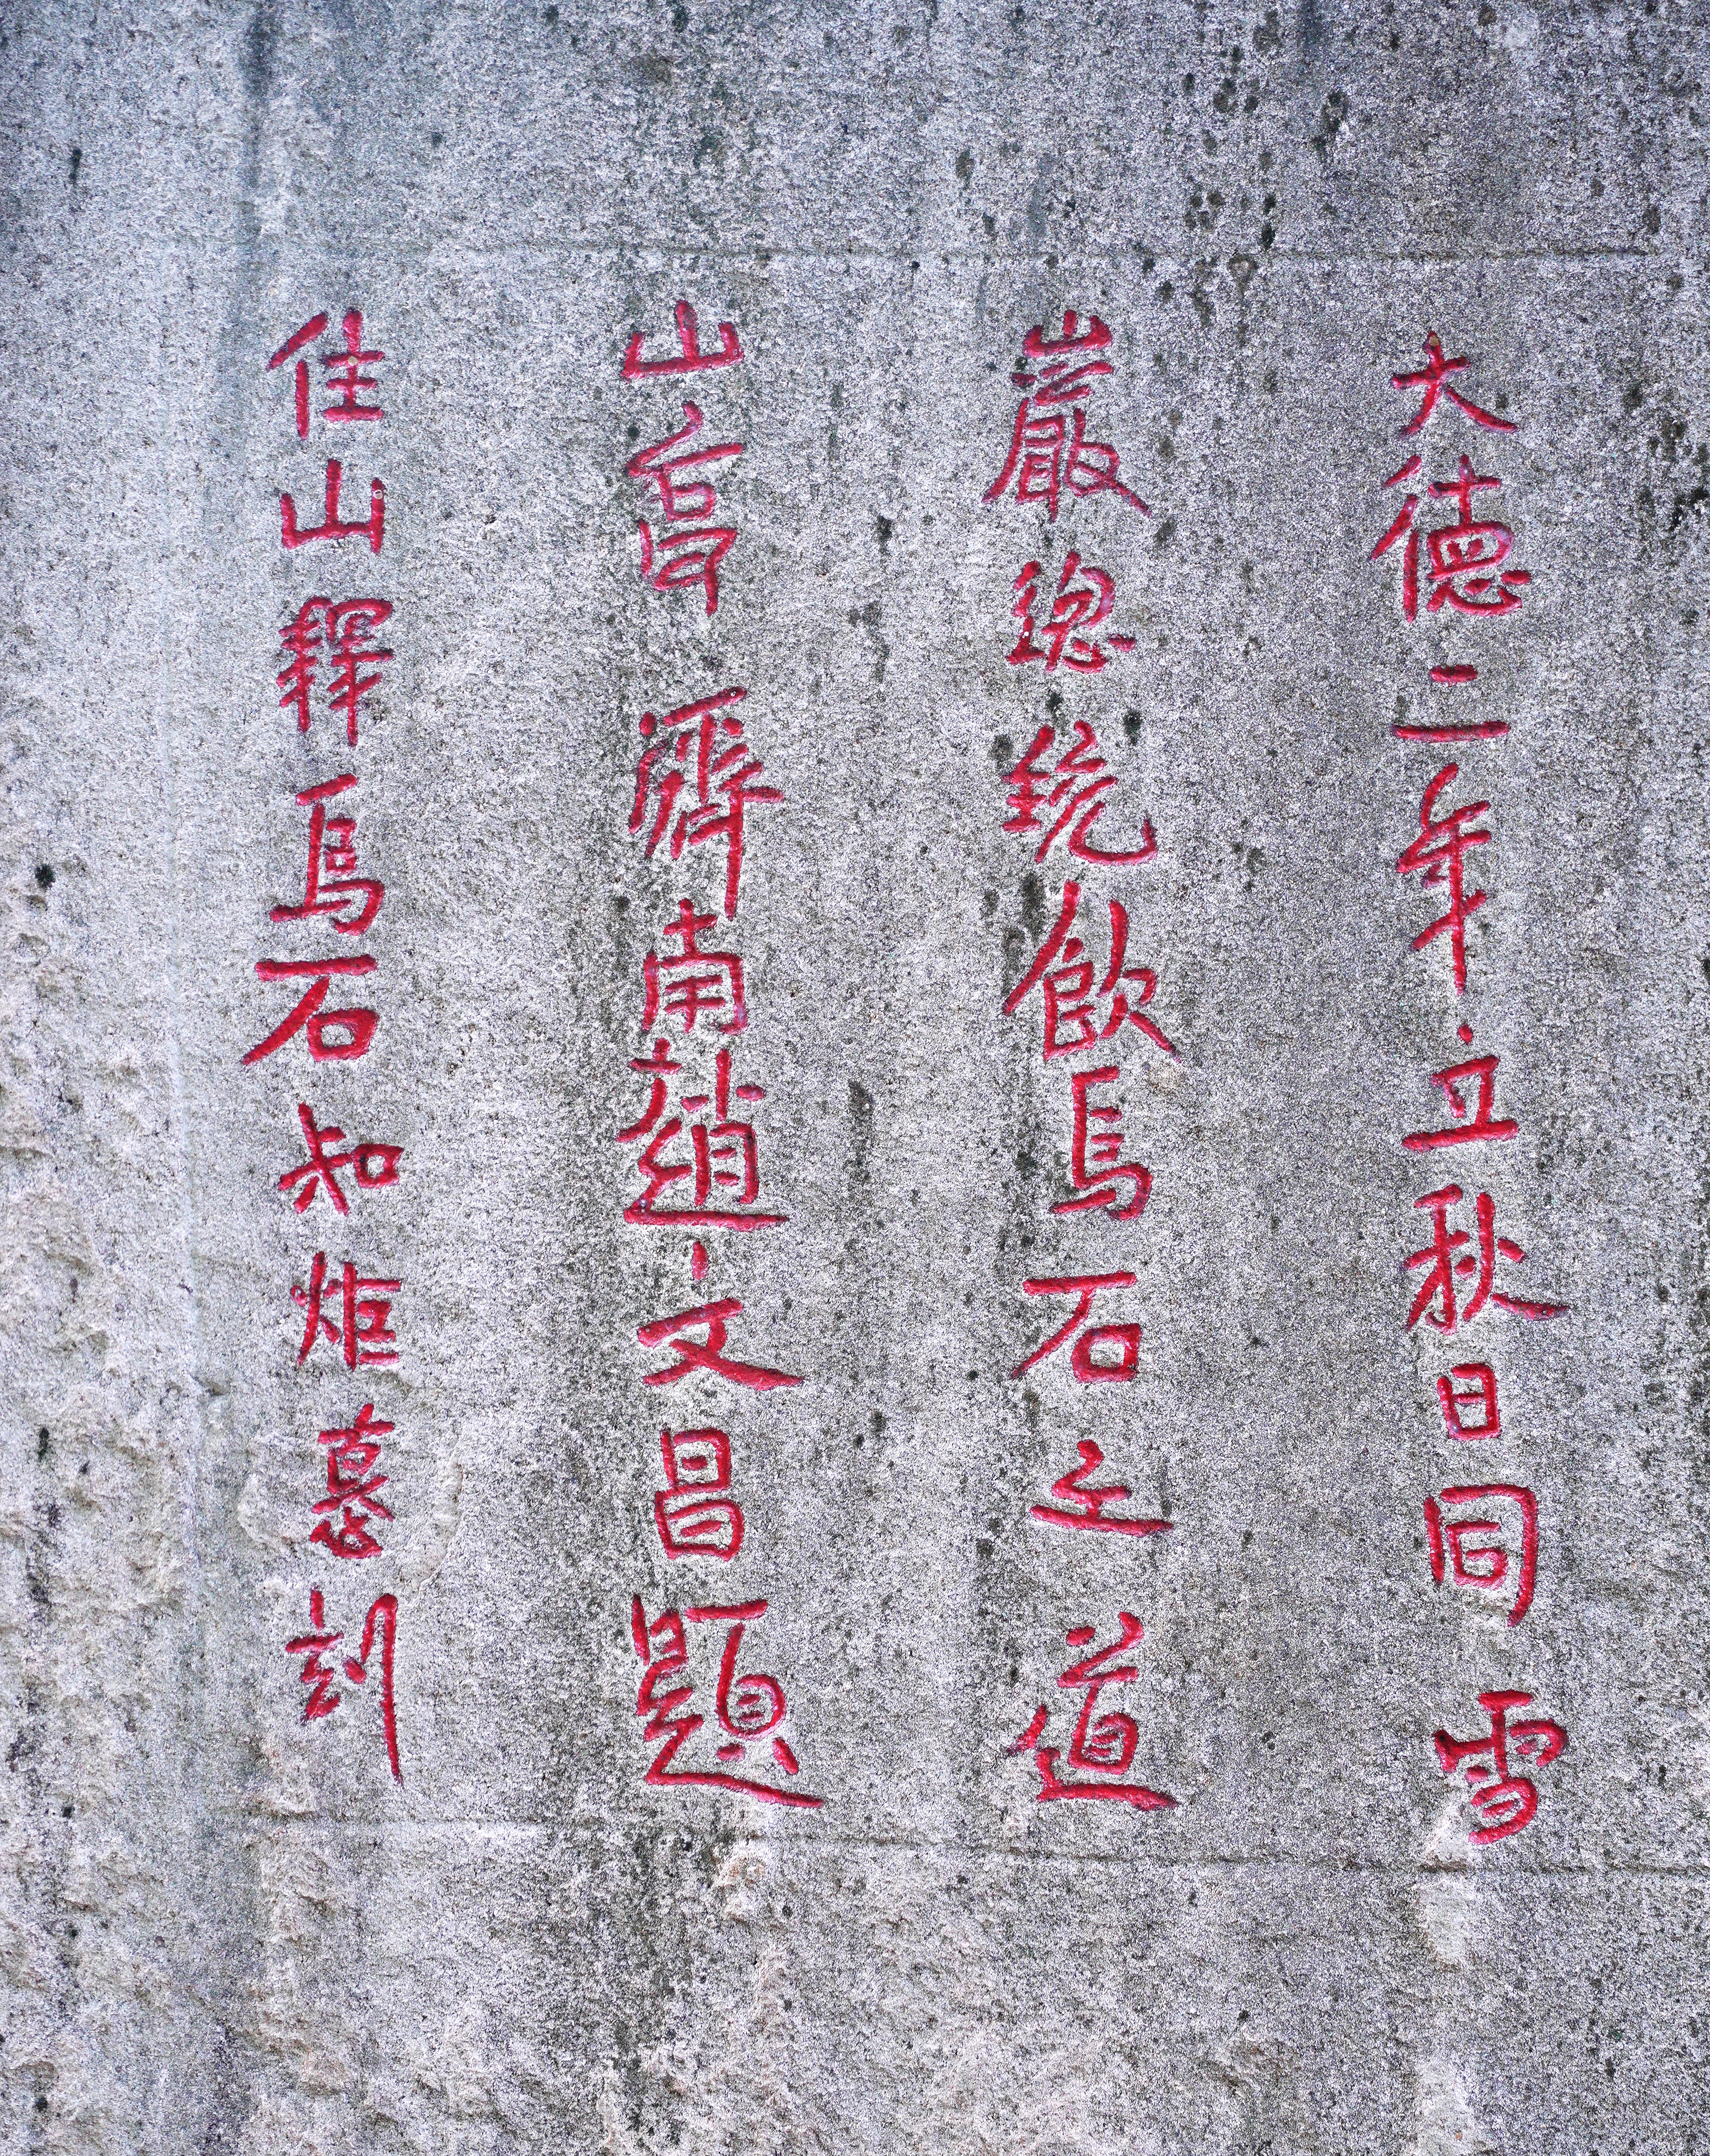 大德二年立秋日同雪
巖總統飲烏石之道
山亭濟南趙文昌題
住山釋烏石知炬募刻